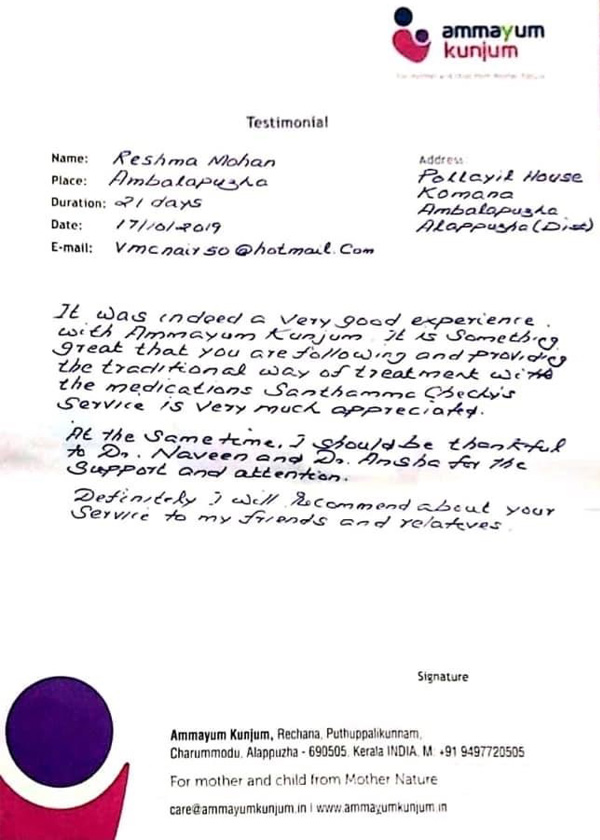 ammayum
kunjum
For mother and child from Mother Nature
Testimonial
Name: Reshma Mohan
Place: Ambalapuzha
Duration: 21 days
Date: 17/10/2019
E-mail: Vmcnair50@hotmail.Com
Address:
Pollayil House
Komana
Ambalapuzha
Alappuzha (Dist)
It was indeed a very good experience.
with Ammayum Kunjum. It is Something
great that you are following and providing
the traditional way of treatment with
the medications Santhamma Chechy's
Service is very much appreciated.
At the Same time, I should be thankful
to Dr. Naveen and Dr. Ansha for the
Support and attention.
Definitely I will Recommend about your
Service to my friends and relatives.
Signature
Ammayum Kunjum, Rechana, Puthuppalikunnam,
Charummodu, Alappuzha - 690505, Kerala INDIA. M: +91 9497720505
For mother and child from Mother Nature
care@ammayumkunjum.in | www.ammayumkunjum.in